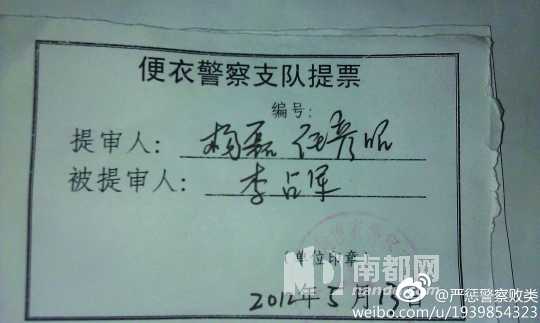 便衣警察支队提票
编号：
提审人： 杨磊 任彦昭
被提审人： 李占军
（单位印章）
南都网
2012年5月13日
@严惩警察败类
weibo.com/u/1939854323